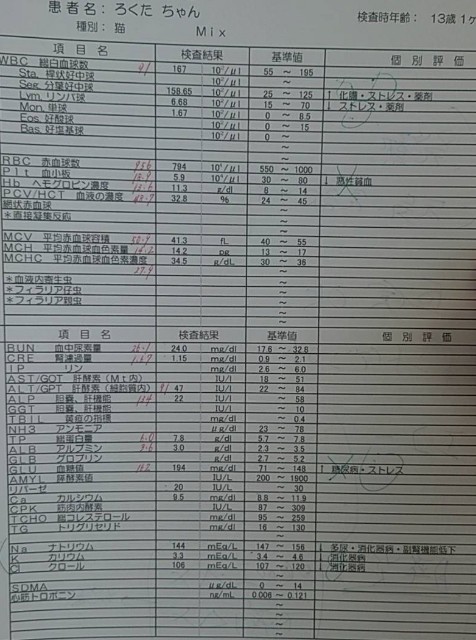 患者名：ろくた ちゃん 検査時年齢： 13歳1ヶ
種別：猫 Mix
項目名 検査結果 基準値 個別評価
WBC 総白血球数 91 167 10²/μl 55 ～ 195
Sta. 桿状好中球 10²/μl ～
Seg. 分葉好中球 158.65 10²/μl 25 ～ 125 ↑ 化膿・ストレス・薬剤
Lym. リンパ球 6.68 10²/μl 15 ～ 70 ↓ ストレス・薬剤
Mon. 単球 1.67 10²/μl 0 ～ 8.5
Eos. 好酸球 10²/μl 0 ～ 15
Bas. 好塩基球 10²/μl 0 ～
RBC 赤血球数 956 794 10⁴/μl 550 ～ 1000
Plt 血小板 5.9 10⁴/μl 30 ～ 80 ↓ 悪性貧血
Hb ヘモグロビン濃度 11.3 g/dl 8 ～ 14
PCV/HCT 血液の濃度 32.8 % 24 ～ 45
網状赤血球 ～
＊直接凝集反応 ～
MCV 平均赤血球容積 41.3 fL 40 ～ 55
MCH 平均赤血球血色素量 14.2 pg 13 ～ 17
MCHC 平均赤血球血色素濃度 34.5 g/dL 30 ～ 36
＊血液内寄生虫 ～
＊フィラリア仔虫 ～
＊フィラリア親虫 ～
項目名 検査結果 基準値 個別評価
BUN 血中尿素量 24.0 mg/dl 17.6 ～ 32.8
CRE 腎濾過量 1.15 mg/dl 0.9 ～ 2.1
IP リン mg/dl 2.6 ～ 6.0
AST/GOT 肝酵素(Mt内) IU/l 18 ～ 51
ALT/GPT 肝酵素(細胞質内) 91 47 IU/l 22 ～ 84
ALP 胆嚢、肝機能 114 22 IU/l ～ 58
GGT 胆嚢、肝機能 IU/l ～ 10
TBIL 黄疸の指標 mg/dl ～ 0.4
NH3 アンモニア μg/dl 23 ～ 78
TP 総蛋白量 7.8 g/dl 5.7 ～ 7.8
ALB アルブミン 3.0 g/dl 2.3 ～ 3.5
GLB グロブリン g/dl 2.7 ～ 5.2
GLU 血糖値 194 mg/dl 71 ～ 148 ↑ 糖尿病・ストレス
AMYL 膵酵素値 IU/L 200 ～ 1900
リパーゼ 20 IU/L ～ 30
Ca カルシウム 9.5 mg/dl 8.8 ～ 11.9
CPK 筋肉内酵素 IU/L 87 ～ 309
TCHO 総コレステロール mg/dl 95 ～ 259
TG トリグリセリド mg/dl 16 ～ 130
Na ナトリウム 144 mEq/L 147 ～ 156 ↓ 多尿・消化器病・副腎機能低下
K カリウム 3.3 mEq/L 3.4 ～ 4.6 ↓ 消化器病
Cl クロール 106 mEq/L 107 ～ 120 ↓ 消化器病
SDMA μg/dL 0 ～ 14
心筋トロポニン ng/mL 0.006 ～ 0.121